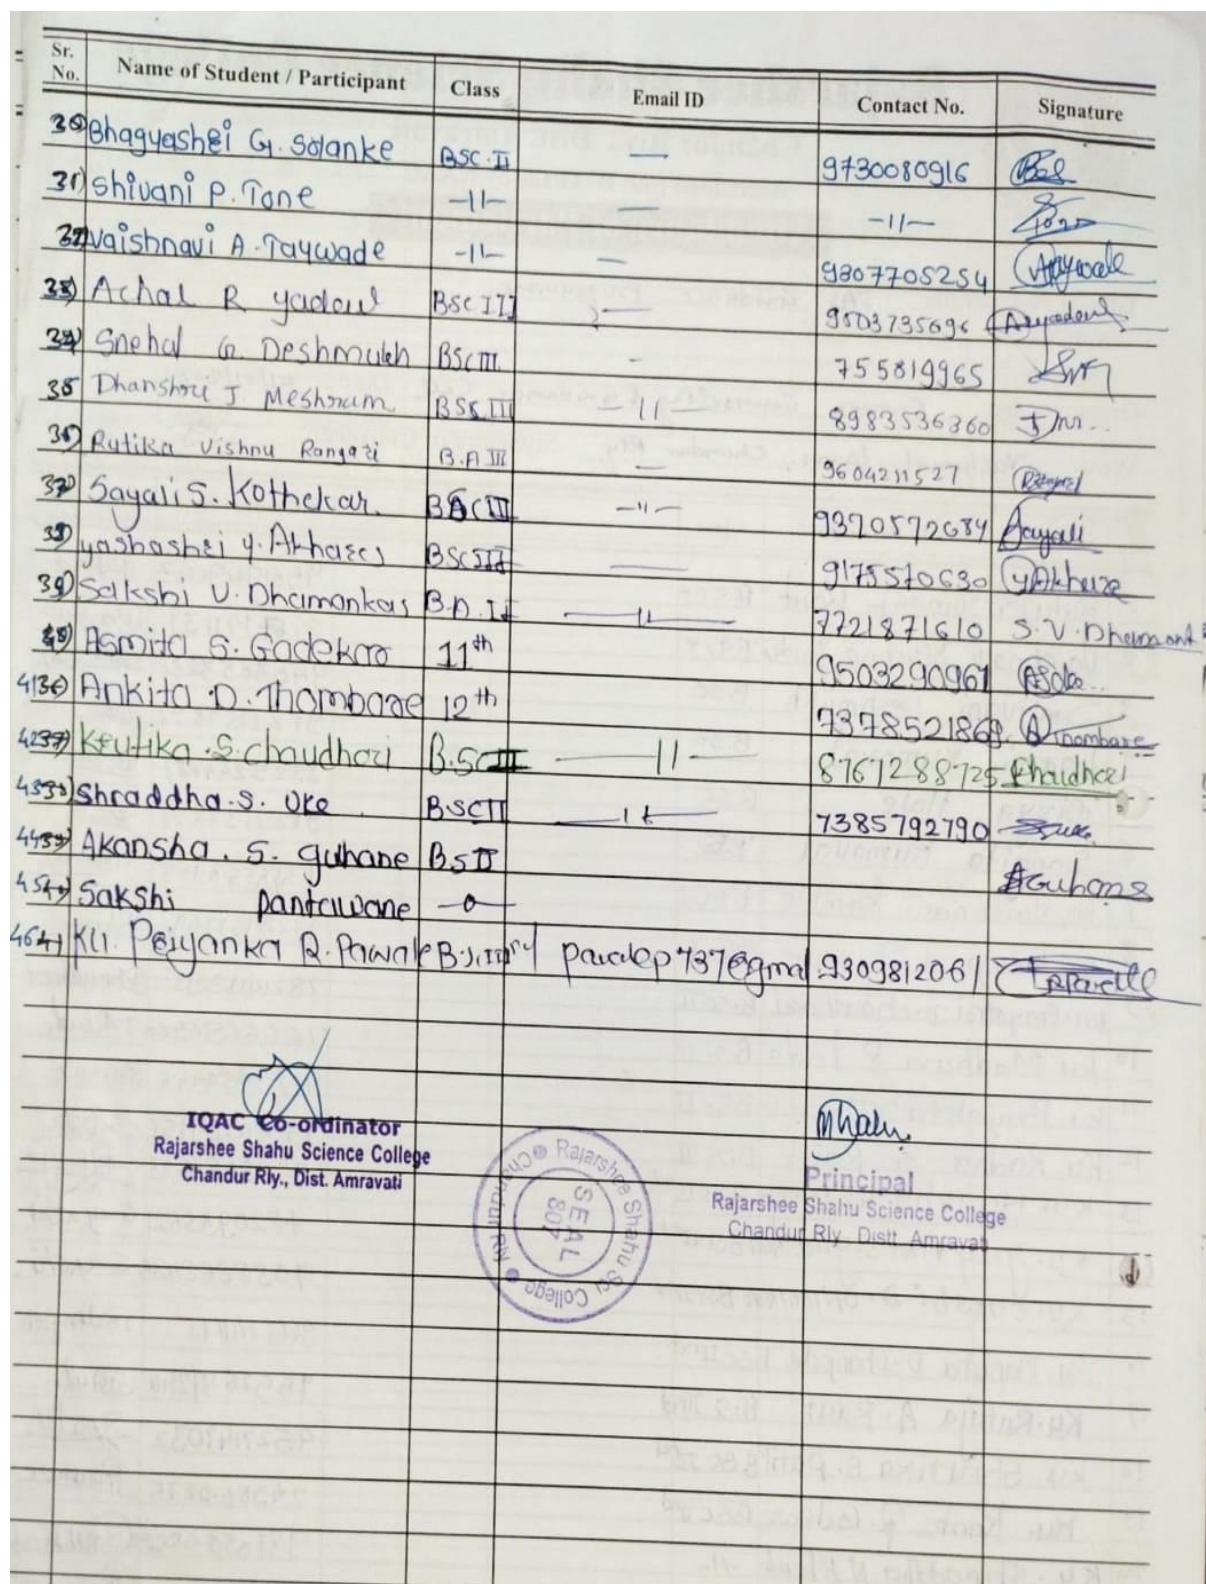 Sr. No. Name of Student / Participant Class Email ID Contact No. Signature
30) Bhagyashri G. Solanke BSC.II — 9730080916
31) Shivani P. Tone -11- — -11-
32) Vaishnavi A. Taywade -11- — 9307705254
33) Achal R yadowl BSC III — 9503735696
34) Snehal G. Deshmukh BSC III - 755819965
35 Dhanshri J. Meshram BSC III - 11 8983536360
36) Rutika Vishnu Rangari B.A III — 9604211527
37) Sayali S. Kothekar. BSC III -"- 9370572684 Sayali
38) yashashri y. Akhare BSC III — 9175570630 yAkhare
39) Sakshi V. Dhamankar B.A. II — 11 — 7721871610 S.V. Dhamank
40) Asmita S. Gadekar 11th 9503290961
41 36) Ankita D. Thombare 12th 7378521868 AThombare
42 37) Krutika .S. chaudhari B.SC III — 11 — 8767288725 Chaudhari
43 38) Shraddha. S. Uke BSC II — 11 — 7385792790
44 39) Akansha. S. guhane BS II AGuhane
45 40) Sakshi pantawane —o—
46 41) KU. Priyanka R. Pawale 930981206
IQAC Co-ordinator
Rajarshee Shahu Science College
Chandur Rly., Dist. Amravati
Principal
Rajarshee Shahu Science College
Chandur Rly. Distt. Amravati
Rajarshee Shahu Sci College Chandur Rly
SEAL
807